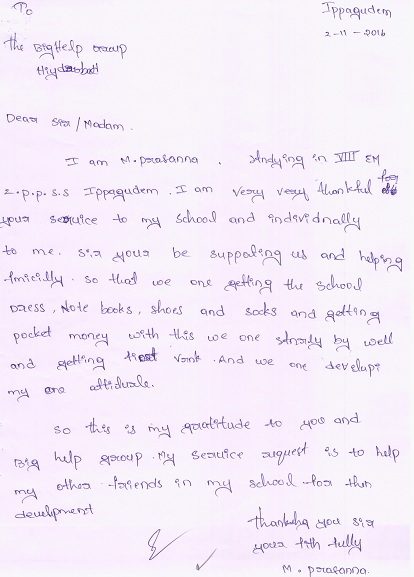 To
Ippagudem
2-11-2016
the BigHelp Group
Hyderbad
Dear Sir/Madam.
I am M.prasanna. Studying in VIII EM
Z.p.p.s.s Ippagudem. I am very very thankful for
your service to my school and individnally
to me. Sir your be suppoting us and helping
fnicilly. so that we one getting the school
Dress, Note books, shoes and socks and getting
pocket money with this we one stnrdy by well
and getting Vank. And we one develupi
my one attidurale.
so this is my gratitude to you and
Big help group. My service request is to help
my other friends in my school for thin
develpment
thanking you sir
your fith fully
M. prasanna.